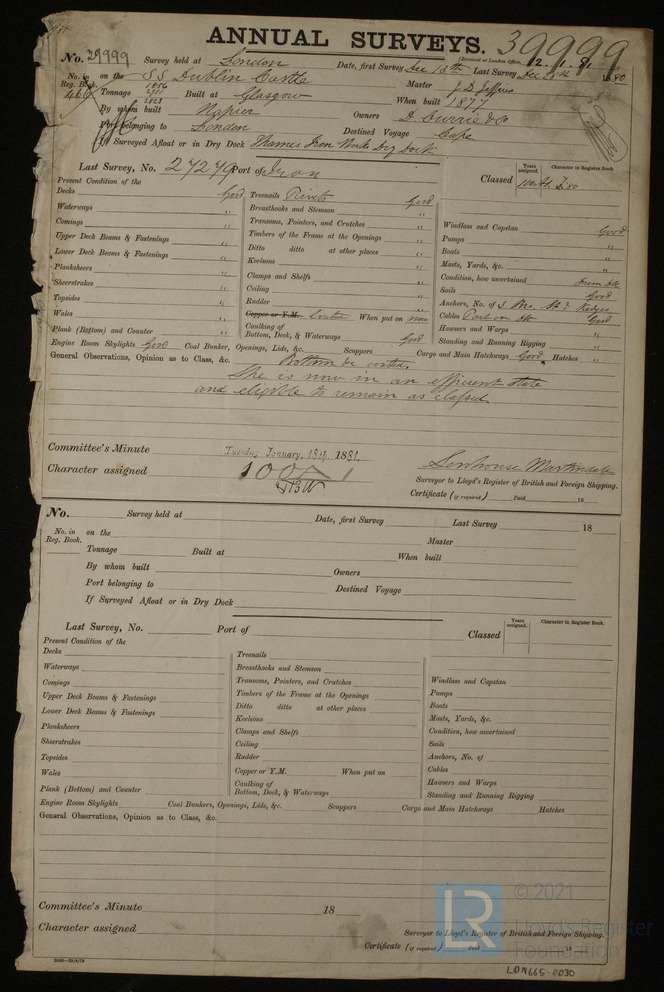 ANNUAL SURVEYS. 39999
No. 39999 Survey held at London Date, first Survey Dec 13th Last Survey Dec 1880
(Received at London Office, 12.1.81
No. in Reg. Book. on the SS Dublin Castle Master J D Jeffries
466 Tonnage 1856 2911 2821 Built at Glasgow When built 1877
By whom built Napier Owners D. Currie & Co
Port belonging to London Destined Voyage Cape
If Surveyed Afloat or in Dry Dock Thames Iron Works Dry Dock
Last Survey, No. 27279 Port of Iron Classed
Years assigned. Character in Register Book.
100A1
Present Condition of the
Decks Good Treenails Rivets Good
Waterways " Breasthooks and Stemson "
Comings " Transoms, Pointers, and Crutches " Windlass and Capstan Good
Upper Deck Beams & Fastenings " Timbers of the Frame at the Openings " Pumps "
Lower Deck Beams & Fastenings " Ditto ditto at other places " Boats "
Planksheers " Keelsons " Masts, Yards, &c. "
Sheerstrakes " Clamps and Shelfs " Condition, how ascertained from dk
Topsides " Ceiling " Sails Good
Wales " Rudder " Anchors, No. of
Plank (Bottom) and Counter " Copper or Y.M. Coated When put on now Cables Part on dk Good
Caulking of Bottom, Deck, & Waterways Good Hawsers and Warps "
Standing and Running Rigging "
Engine Room Skylights Good Coal Bunker, Openings, Lids, &c. Scuppers Cargo and Main Hatchways Good Hatches "
General Observations, Opinion as to Class, &c. Bottom be coated,
She is now in an efficient state
and eligible to remain as classed.
Committee's Minute Tuesday, January, 18th, 1881,
Character assigned 100A1
Senhouse Martindale
Surveyor to Lloyd's Register of British and Foreign Shipping.
Certificate (if required) Paid 18
No. Survey held at Date, first Survey Last Survey 18
No. in Reg. Book. on the Master
Tonnage Built at When built
By whom built Owners
Port belonging to Destined Voyage
If Surveyed Afloat or in Dry Dock
Last Survey, No. Port of Classed
Years assigned. Character in Register Book.
Present Condition of the
Decks Treenails
Waterways Breasthooks and Stemson
Comings Transoms, Pointers, and Crutches Windlass and Capstan
Upper Deck Beams & Fastenings Timbers of the Frame at the Openings Pumps
Lower Deck Beams & Fastenings Ditto ditto at other places Boats
Planksheers Keelsons Masts, Yards, &c.
Sheerstrakes Clamps and Shelfs Condition, how ascertained
Topsides Ceiling Sails
Wales Rudder Anchors, No. of
Plank (Bottom) and Counter Copper or Y.M. When put on Cables
Caulking of Bottom, Deck, & Waterways Hawsers and Warps
Standing and Running Rigging
Engine Room Skylights Coal Bunkers, Openings, Lids, &c. Scuppers Cargo and Main Hatchways Hatches
General Observations, Opinion as to Class, &c.
Committee's Minute 18
Character assigned
Surveyor to Lloyd's Register of British and Foreign Shipping.
Certificate (if required) Paid 18
LR © 2021 Lloyd's Register Foundation
LDN665-0030